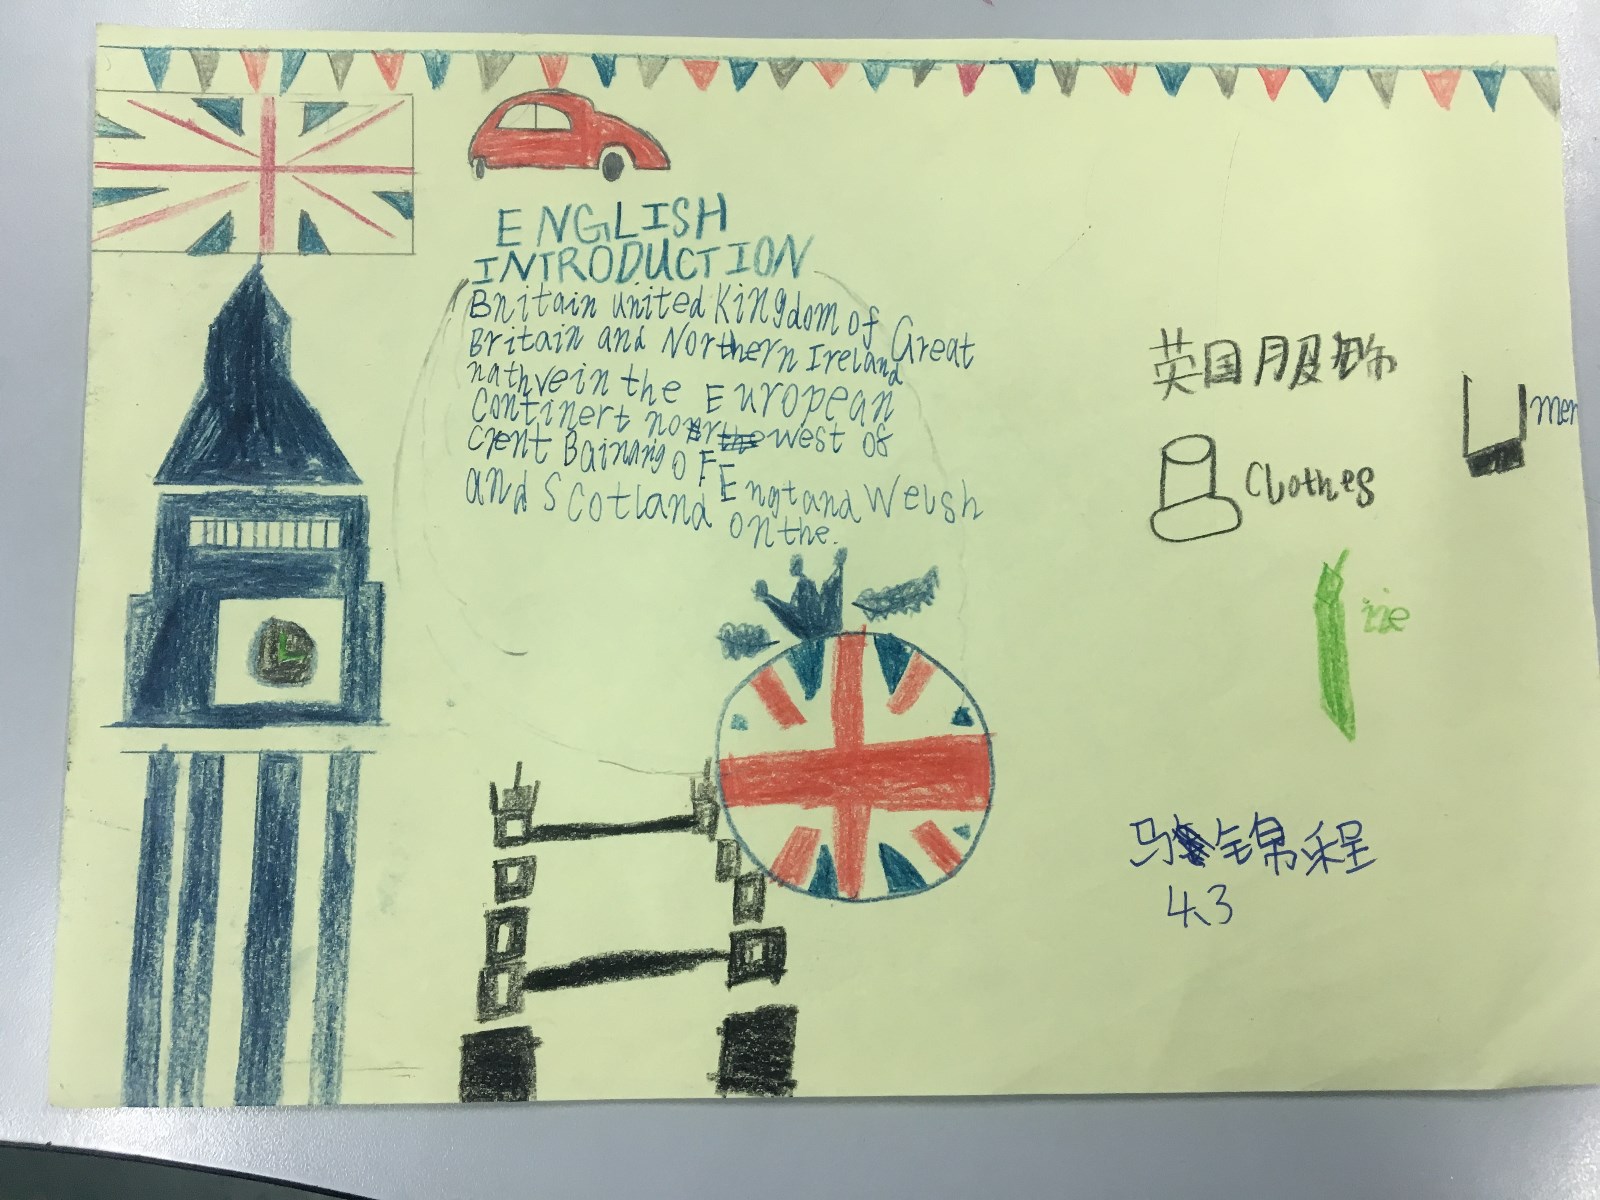 ENGLISH
INTRODUCTION
Bnitain united Kingdom of Great
Britain and Northern Ireland
nathvein the European
Continert west of
Bainang OF
and Scotland Engtand Welsh
on the.
英国服饰
men
Clothes
tie
马锦程
4.3